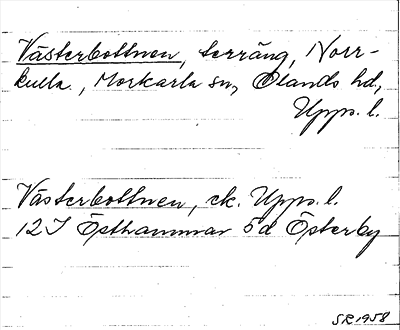 Västerbottnen, terräng, Norr-
kulla, Morkarla sn, Olands hd,
Upps. l.
Västerbottnen, ek. Upps. l.
12I Östhammar 5d Österby
SR 1958